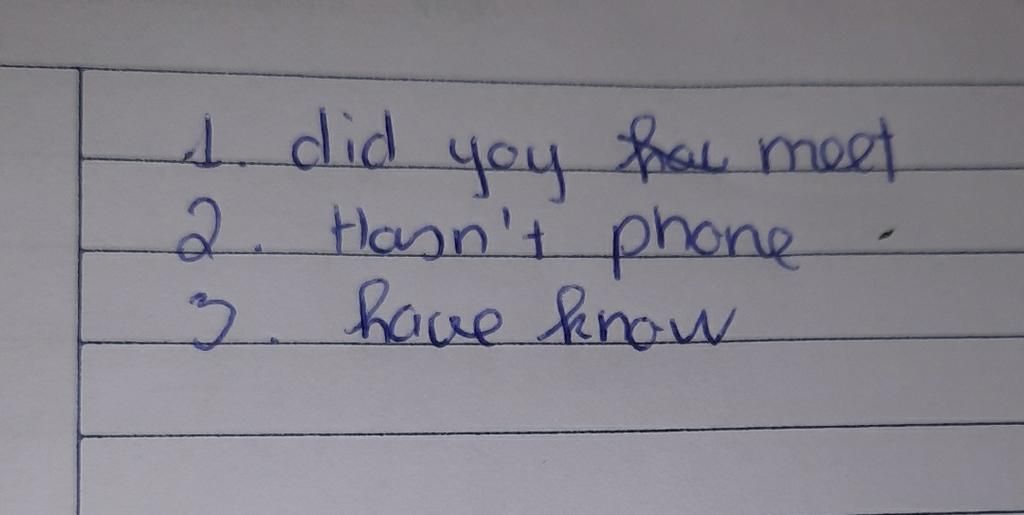 1. did you meet
2. Hasn't phone
3. have know